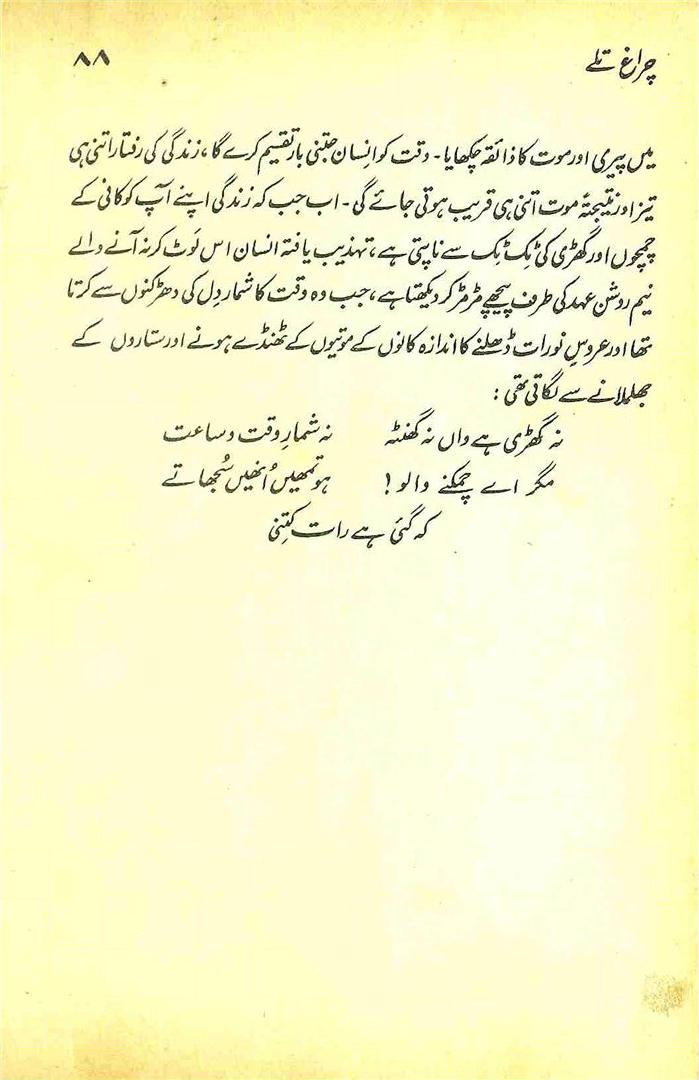 چراغ تلے ۸۸
میں پیری اور موت کا ذائقہ چکھایا۔ وقت کو انسان جتنی بار تقسیم کرے گا، زندگی کی رفتار اتنی ہی
تیز اور نتیجتہً موت اتنی ہی قریب ہوتی جائے گی۔ اب جب کہ زندگی اپنے آپ کو کافی کے
چمچوں اور گھڑی کی ٹِک ٹِک سے ناپتی ہے، تہذیب یافتہ انسان اس لَوٹ کر نہ آنے والے
نیم روشن عہد کی طرف پیچھے مُڑ مُڑ کر دیکھتا ہے، جب وہ وقت کا شمار دِل کی دھڑکنوں سے کرتا
تھا اور عروسِ نو رات ڈھلنے کا اندازہ کانوں کے موتیوں کے ٹھنڈے ہونے اور ستاروں کے
جھلملانے سے لگاتی تھی:
نہ گھڑی ہے واں نہ گھنٹہ نہ شمارِ وقت و ساعت
مگر اے چمکنے والو! ہو تمھیں اُنھیں سُجھاتے
کہ گئی ہے رات کِتنی